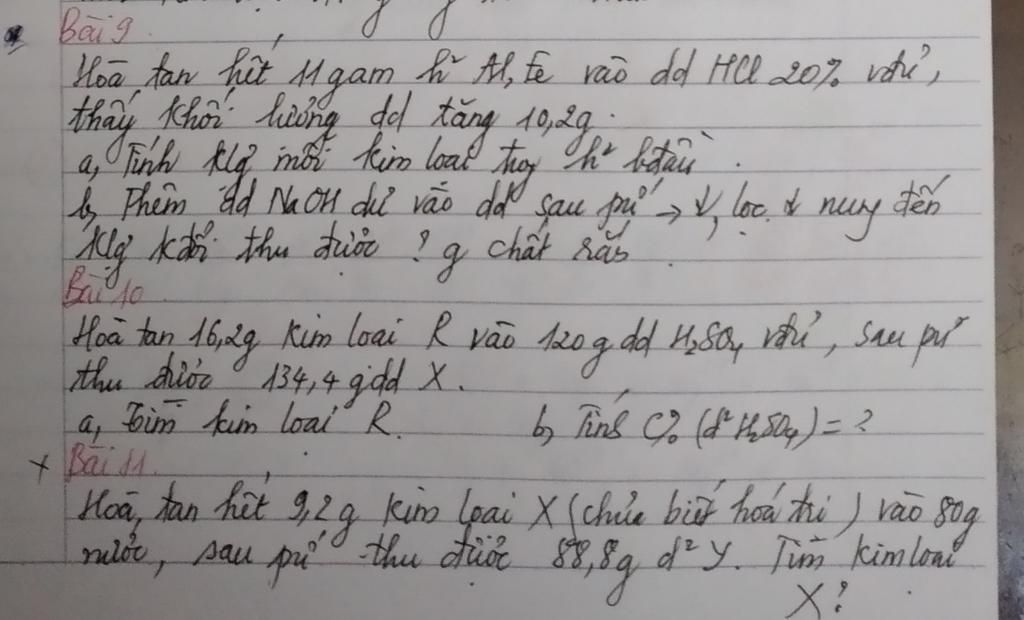 Bài 9.
Hoà tan hết 11 gam h² Al, Fe vào dd HCl 20% vđủ,
thấy khối lượng dd tăng 10,2g.
a, Tính klg mỗi kim loại trog h² bđầu.
b, Thêm dd NaOH dư vào dd sau pứ → ↓, lọc ↓ nung đến
klg kđổi thu được ? g chất rắn.
Bài 10
Hoà tan 16,2g kim loại R vào 120g dd H₂SO₄ vđủ, sau pứ
thu được 134,4 g dd X.
a, Tìm kim loại R. b, Tính C% (d² H₂SO₄) = ?
x Bài 11.
Hoà tan hết 9,2g kim loại X (chưa biết hoá trị) vào 80g
nước, sau pứ thu được 88,8g d² Y. Tìm kim loại
X?